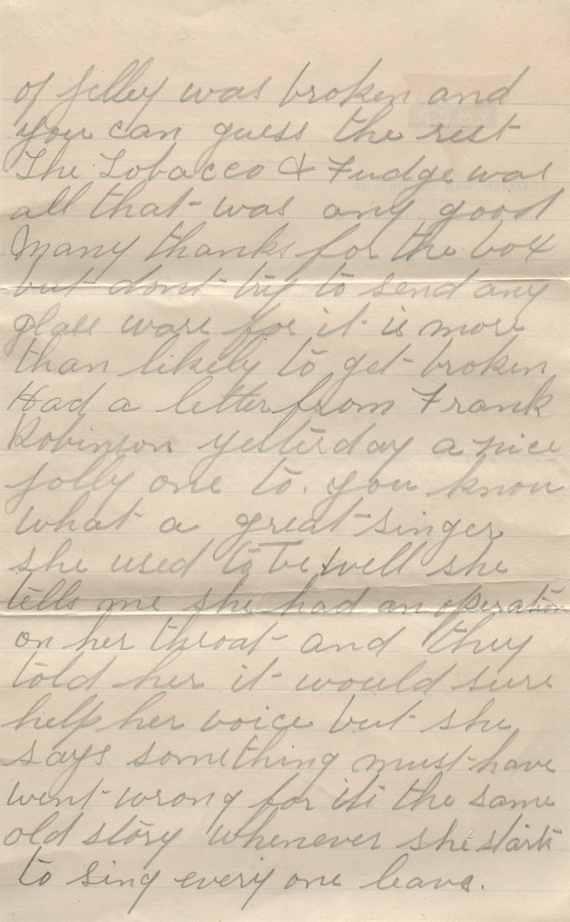 of jelley was broken and
you can guess the rest
The Tobacco & Fudge was
all that was any good
Many thanks for the box
but dont try to send any
glass ware for it is more
than likely to get broken
Had a letter from Frank
Robinson yesterday a nice
jolly one to. you know
what a great singer
she used to be well she
tells me she had an operation
on her throat and they
told her it would sure
help her voice but she
says something must have
went wrong for its the same
old story whenever she starts
to sing every one leave.